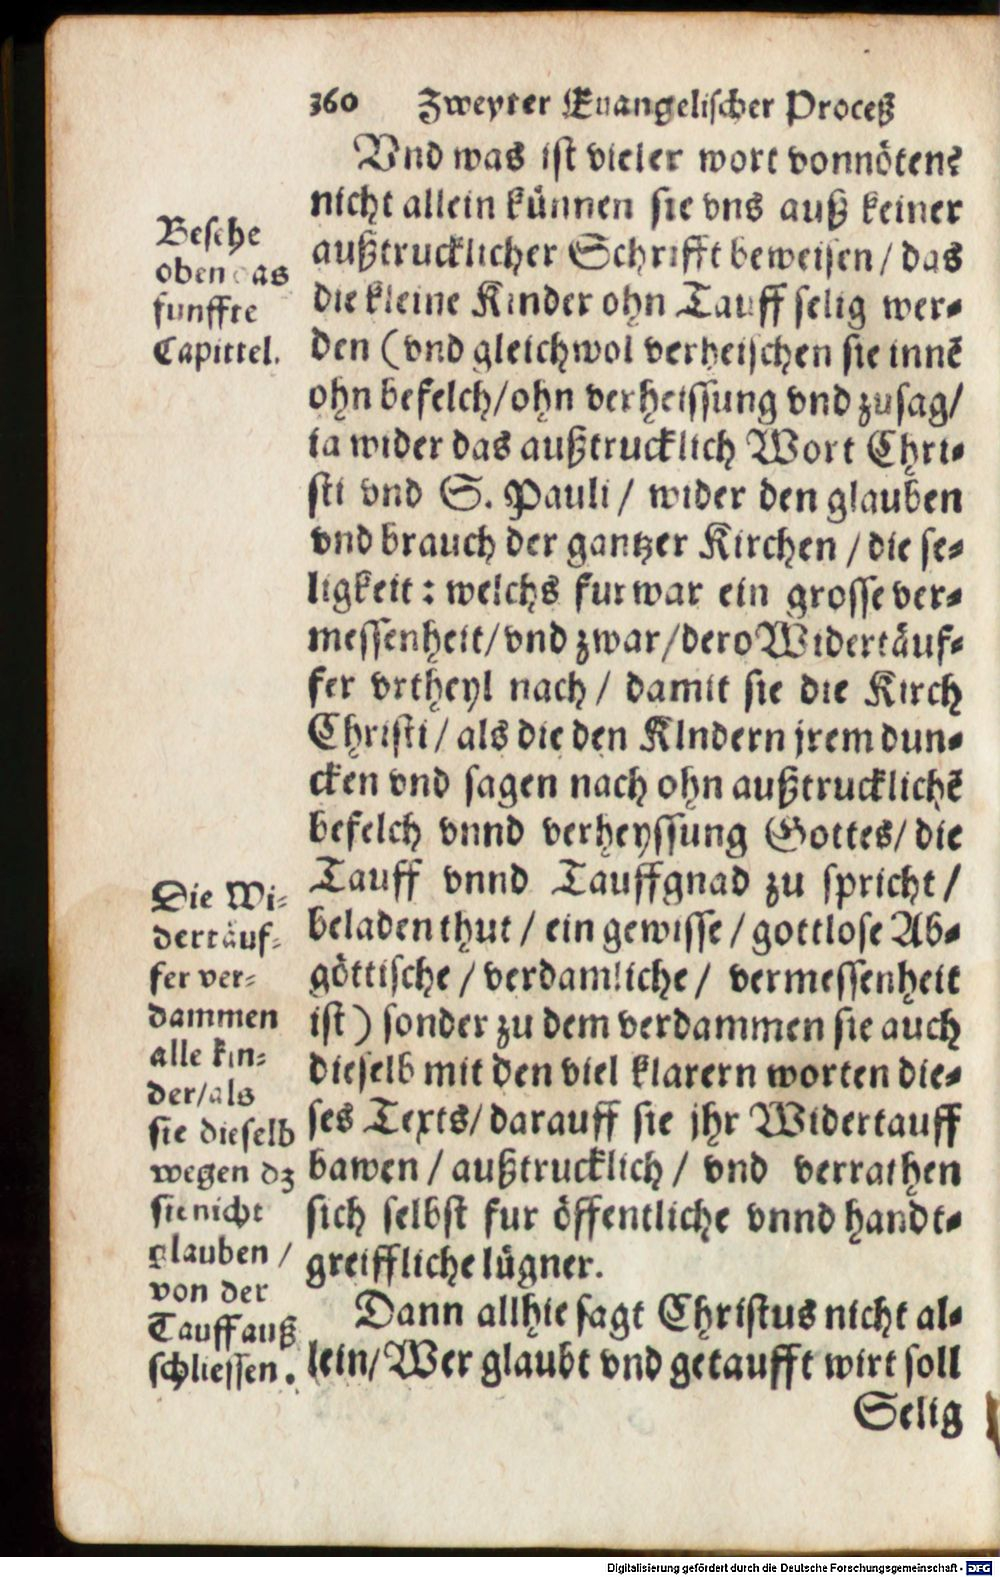 360 Zweyter Euangelischer Proceß
Vnd was ist vieler wort vonnöten?
nicht allein künnen sie vns auß keiner
außtrucklicher Schrifft beweisen / das
die kleine Kinder ohn Tauff selig wer⸗
den (vnd gleichwol verheischen sie innē
ohn befelch/ohn verheissung vnd zusag/
ia wider das außtrucklich Wort Chri⸗
sti vnd S. Pauli / wider den glauben
vnd brauch der gantzer Kirchen / die se⸗
ligkeit : welchs furwar ein grosse ver⸗
messenheit/vnd zwar/dero Widertäuf⸗
fer vrtheyl nach / damit sie die Kirch
Christi / als die den KIndern jrem dun⸗
cken vnd sagen nach ohn außtrucklichē
befelch vnnd verheyssung Gottes/ die
Tauff vnnd Tauffgnad zu spricht /
beladen thut / ein gewisse / gottlose Ab⸗
göttische / verdamliche / vermessenheit
ist ) sonder zu dem verdammen sie auch
dieselb mit den viel klarern worten die⸗
ses Texts/ darauff sie jhr Widertauff
bawen / außtrucklich / vnd verrathen
sich selbst fur öffentliche vnnd handt⸗
greiffliche lügner.
Dann allhie sagt Christus nicht al⸗
lein/Wer glaubt vnd getaufft wirt soll
Selig
Besehe
oben das
funffte
Capittel.
Die Wi⸗
dertäuf⸗
fer ver⸗
dammen
alle kin⸗
der/als
sie dieselb
wegen dz
sie nicht
glauben /
von der
Tauff auß
schliessen.
Digitalisierung gefördert durch die Deutsche Forschungsgemeinschaft - DFG